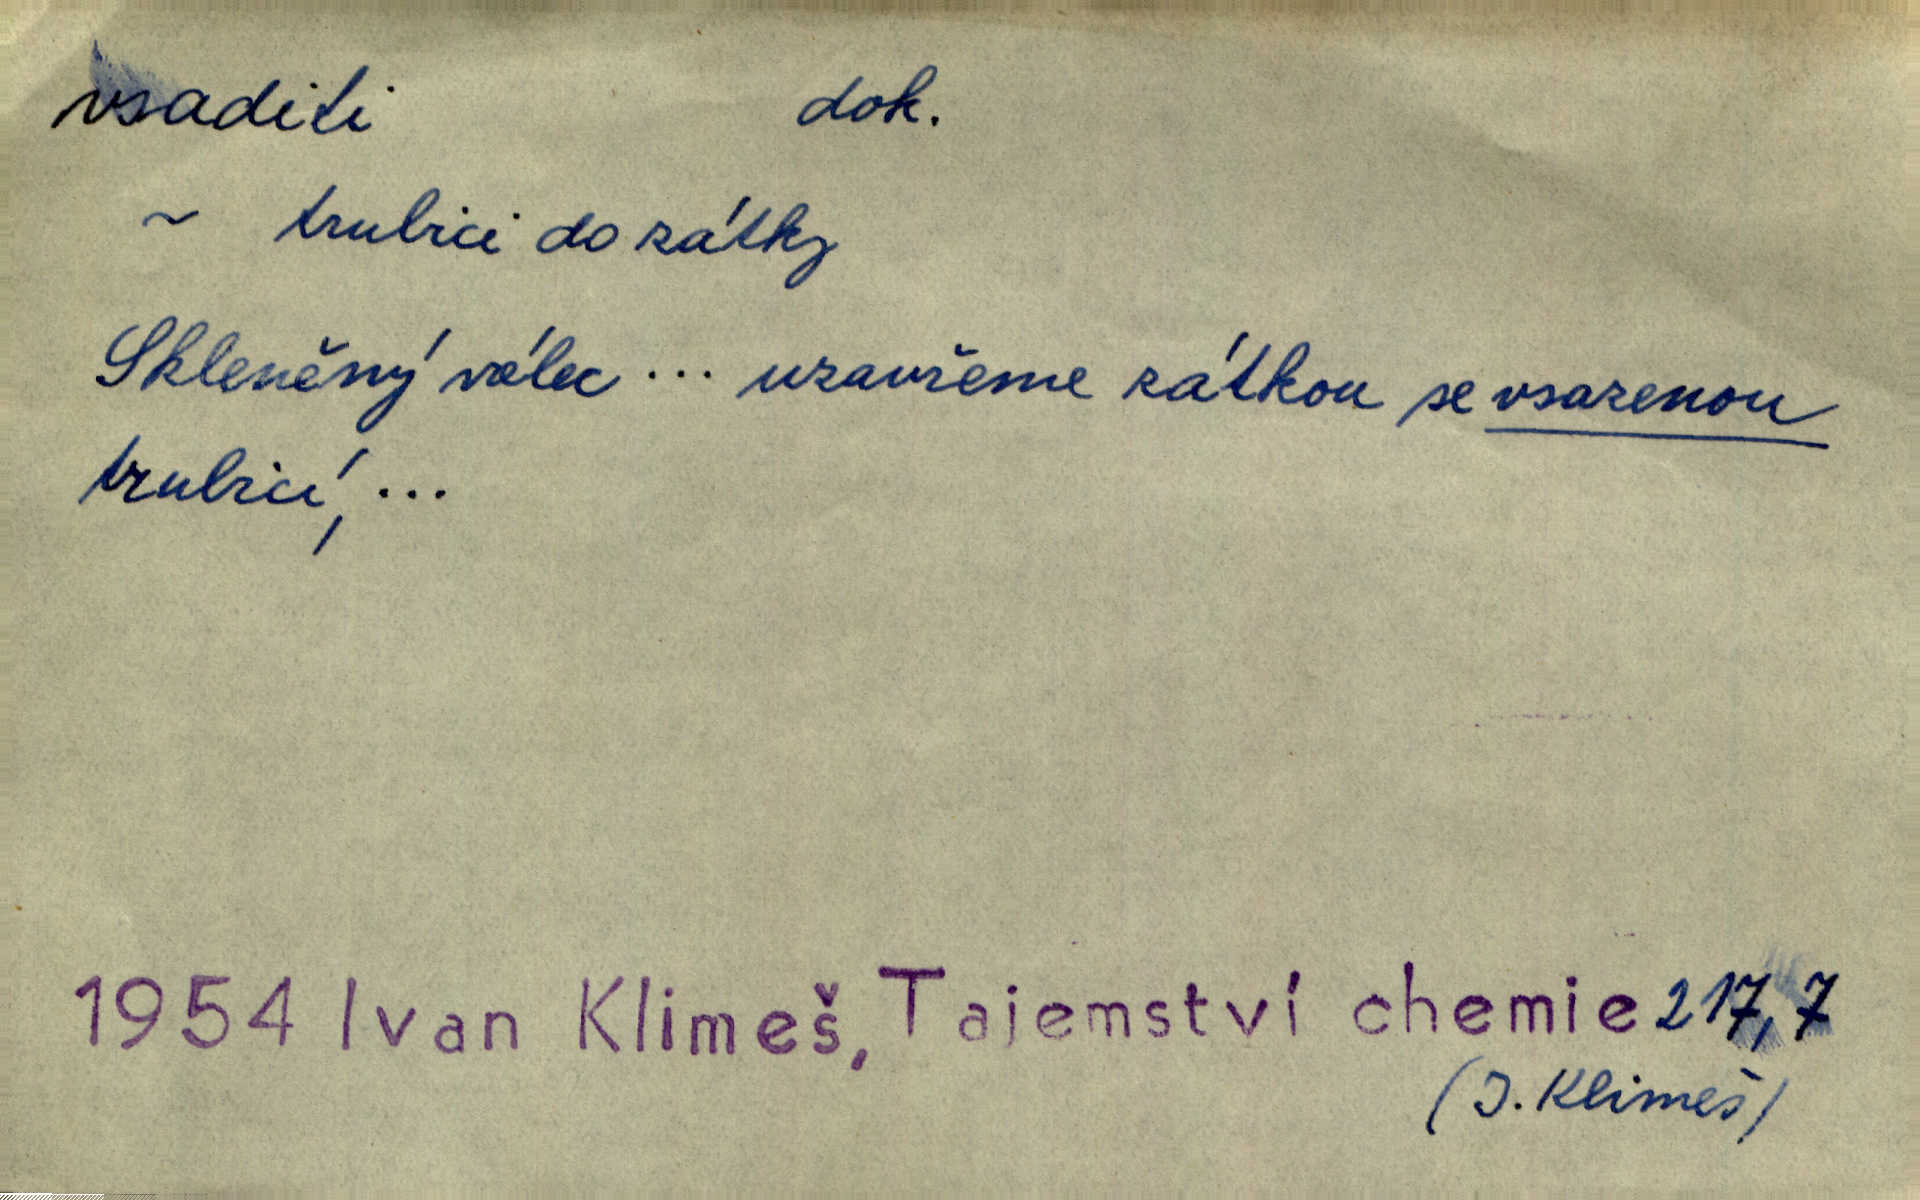 vsaditi dok.
~ trubici do zátky
Skleněný válec ... uzavřeme zátkou se vsazenou
trubicí, ...
1954 Ivan Klimeš, Tajemství chemie 217,7
(I. Klimeš)